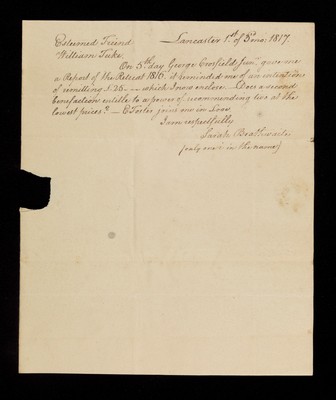 Esteemed Friend Lancaster 1st. of 8 mo: 1817.
William Tuke,
On 5th day George Crosfield Junr. gave me
a Report of the Retreat 1816. it reminded me of an intentions
of remitting £25 -- which I now enclose - Does a second
benefaction intitle to a power of recommending two at the
lowest prices? - E Forster joins me in Love.
I am respectfully
Sarah Brathwaite
(only one i in the name)